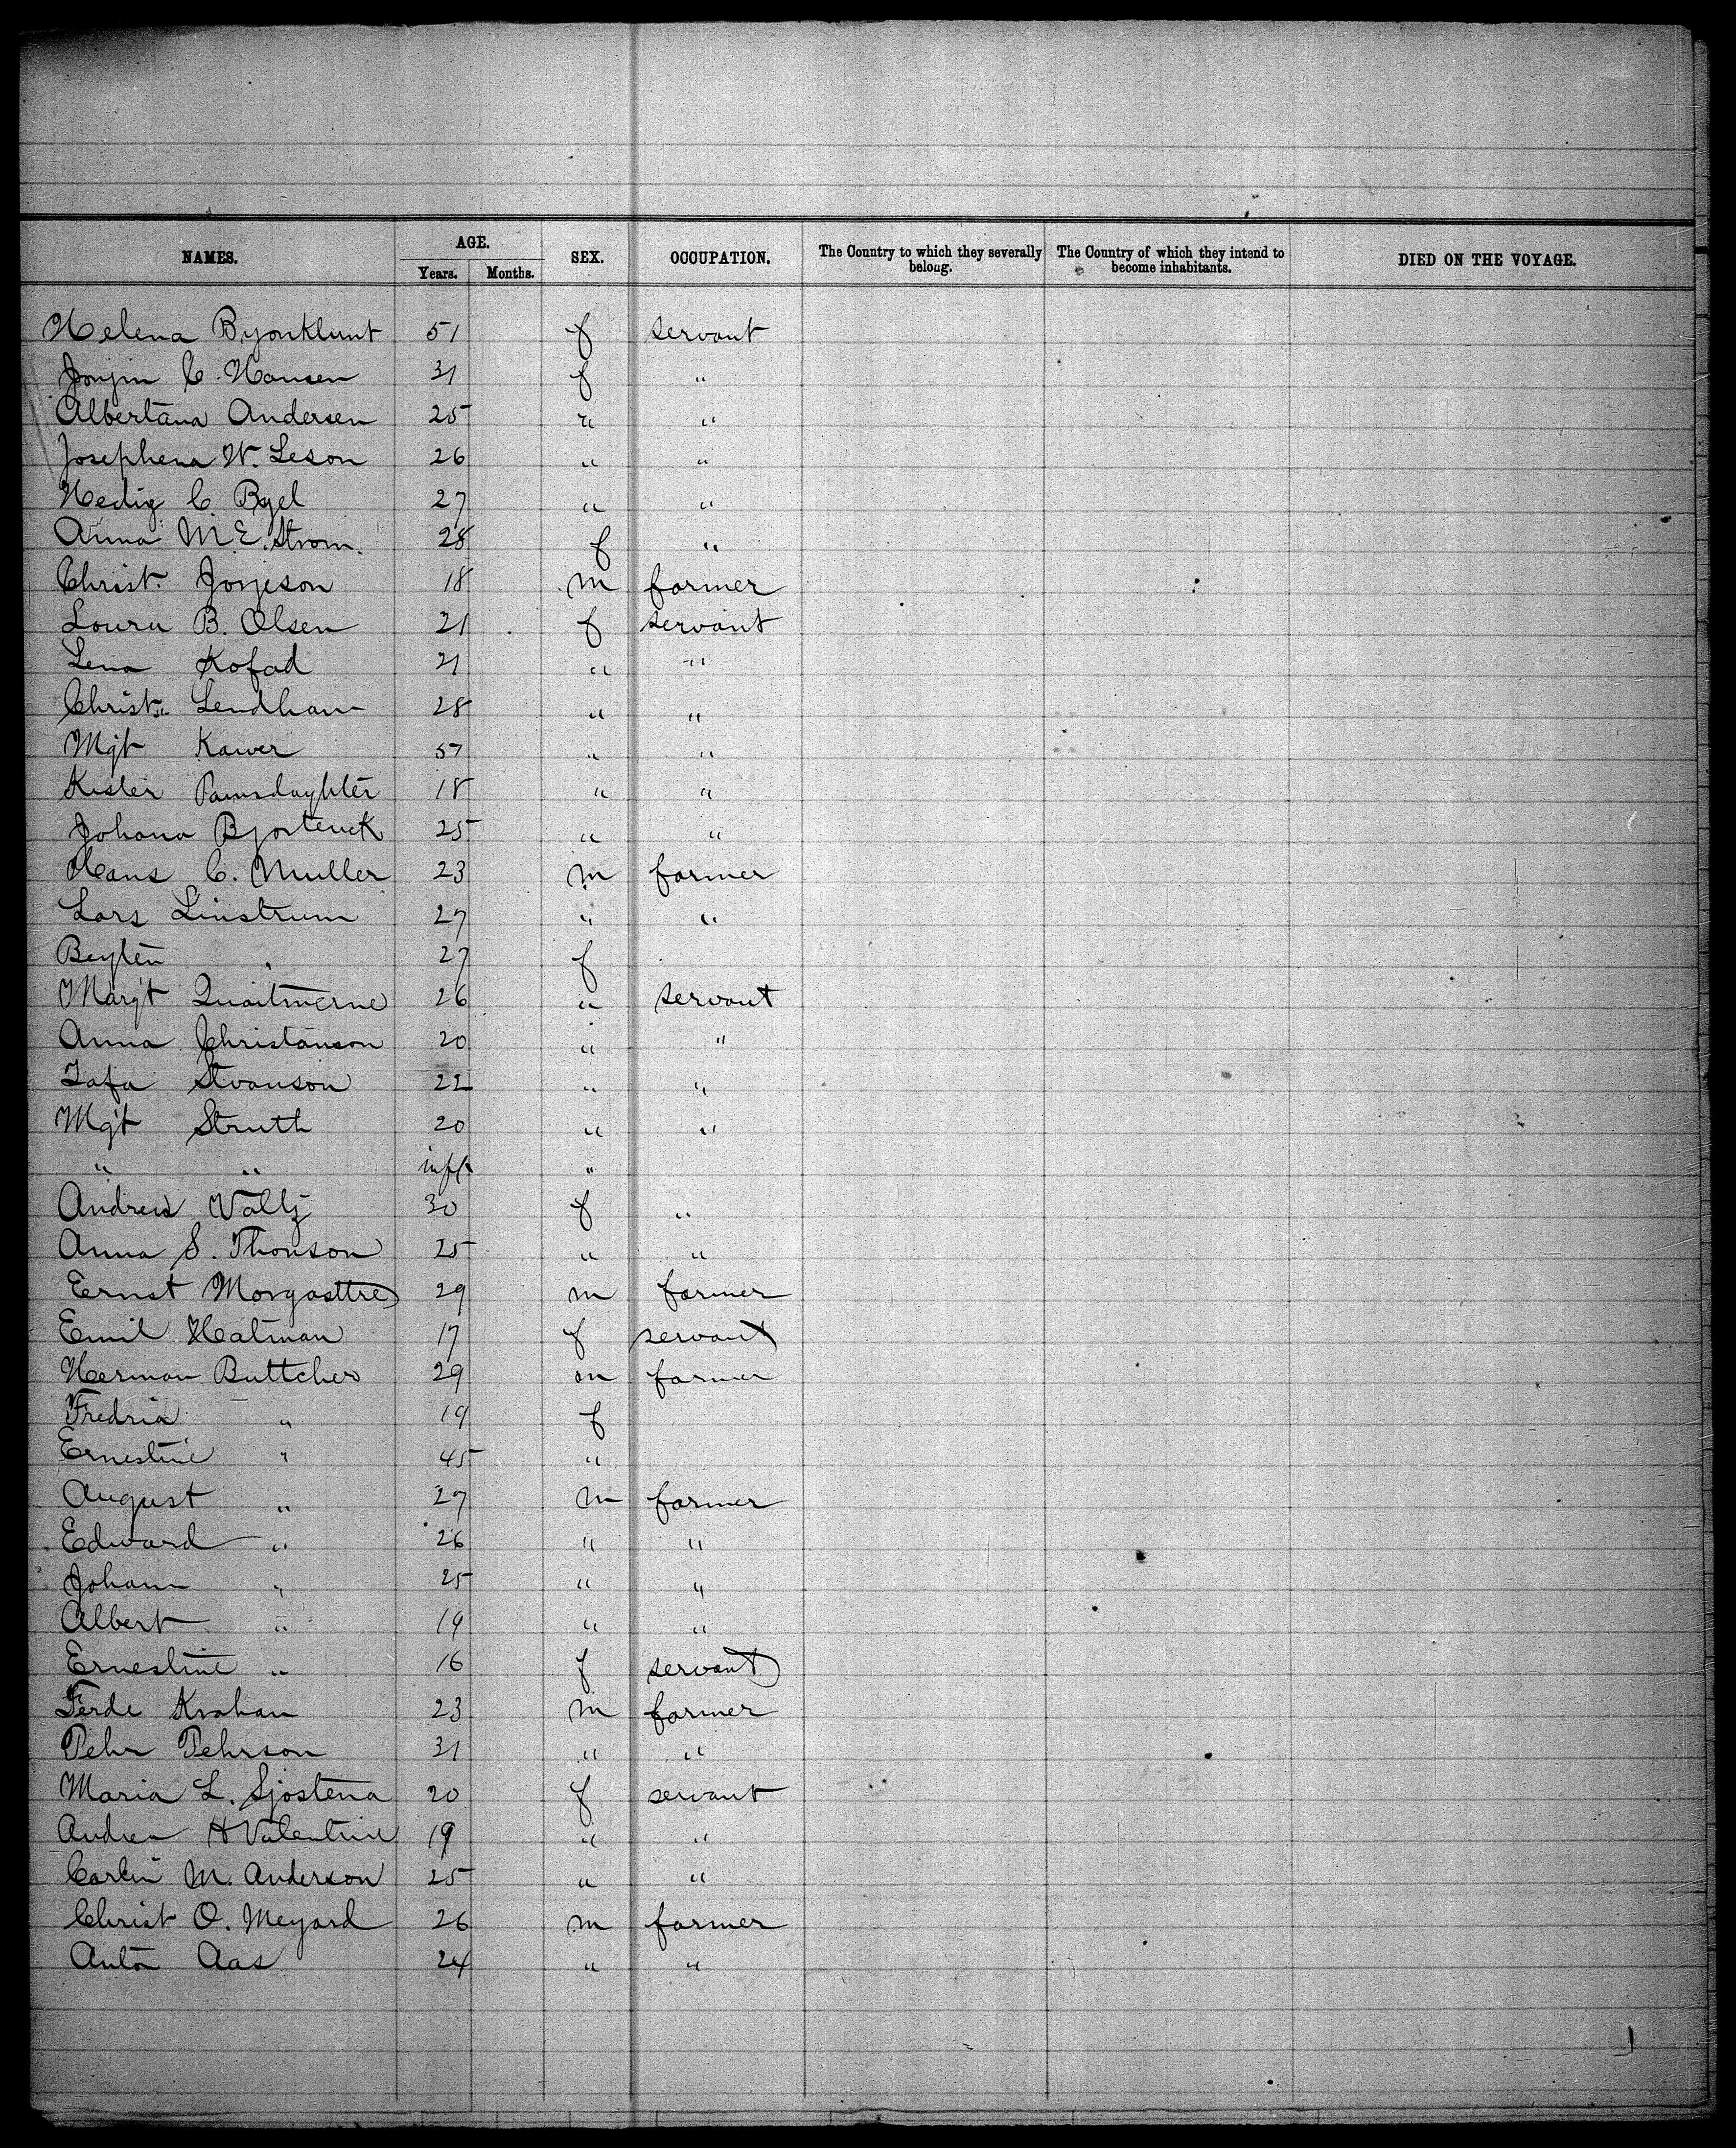 NAMES. AGE. SEX. OCCUPATION. The Country to which they severally belong. The Country of which they intend to become inhabitants. DIED ON THE VOYAGE.
Years. Months.
Helena Byonklunt 51 f servant
C. Hansen 31 f "
Albertana Andersen 25 " "
Josephena W. Leson 26 " "
Hedig C. Bgel 27 " "
Anna M E. Strom. 28 f "
Christ. Jorjeson 18 m farmer
Louru B. Olsen 21 f servant
Lena Kofad 21 " "
Christ. Lendham 28 " "
Mgt Kawer 57 " "
Kister 18 " "
Johana 25 " "
Hans C. Muller 23 m farmer
Lars Linstrum 27 " "
Beyten " 27 f
Margt 26 " servant
Anna Christanson 20 " "
Svanson 22 " "
Mgt Struth 20 " "
" " inft "
Andrew 30 f "
Anna S. Thonson 25 " "
Ernst 29 m farmer
Emil Hatman 17 f servant
Herman Buttcher 29 m farmer
Fredria " 19 f
Ernestine " 45 "
August " 27 m farmer
Edward " 26 " "
Johann " 25 " "
Albert " 19 " "
Ernestine " 16 f servant
Ferde Krahan 23 m farmer
Pehr Pehrson 31 " "
Maria L. Sjostena 20 f servant
Andrea H Valentine 19 " "
Carlin M. Anderson 25 " "
Christ O. Meyard 26 m farmer
Anton Aas 24 " "